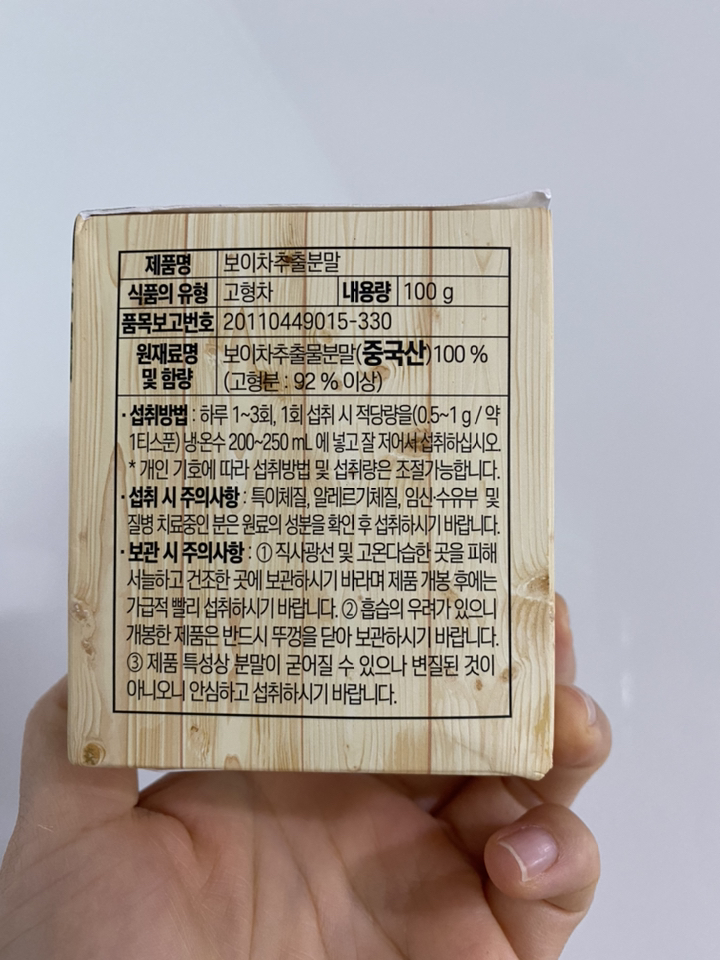 제품명 보이차추출분말
식품의 유형 고형차 내용량 100 g
품목보고번호 20110449015-330
원재료명 및 함량 보이차추출물분말(중국산)100 %
(고형분 : 92 % 이상)
· 섭취방법 : 하루 1~3회, 1회 섭취 시 적당량을(0.5~1 g / 약
1티스푼) 냉·온수 200~250 mL 에 넣고 잘 저어서 섭취하십시오.
* 개인 기호에 따라 섭취방법 및 섭취량은 조절가능합니다.
· 섭취 시 주의사항 : 특이체질, 알레르기체질, 임신·수유부 및
질병 치료중인 분은 원료의 성분을 확인 후 섭취하시기 바랍니다.
· 보관 시 주의사항 : ① 직사광선 및 고온다습한 곳을 피해
서늘하고 건조한 곳에 보관하시기 바라며 제품 개봉 후에는
가급적 빨리 섭취하시기 바랍니다. ② 흡습의 우려가 있으니
개봉한 제품은 반드시 뚜껑을 닫아 보관하시기 바랍니다.
③ 제품 특성상 분말이 굳어질 수 있으나 변질된 것이
아니오니 안심하고 섭취하시기 바랍니다.